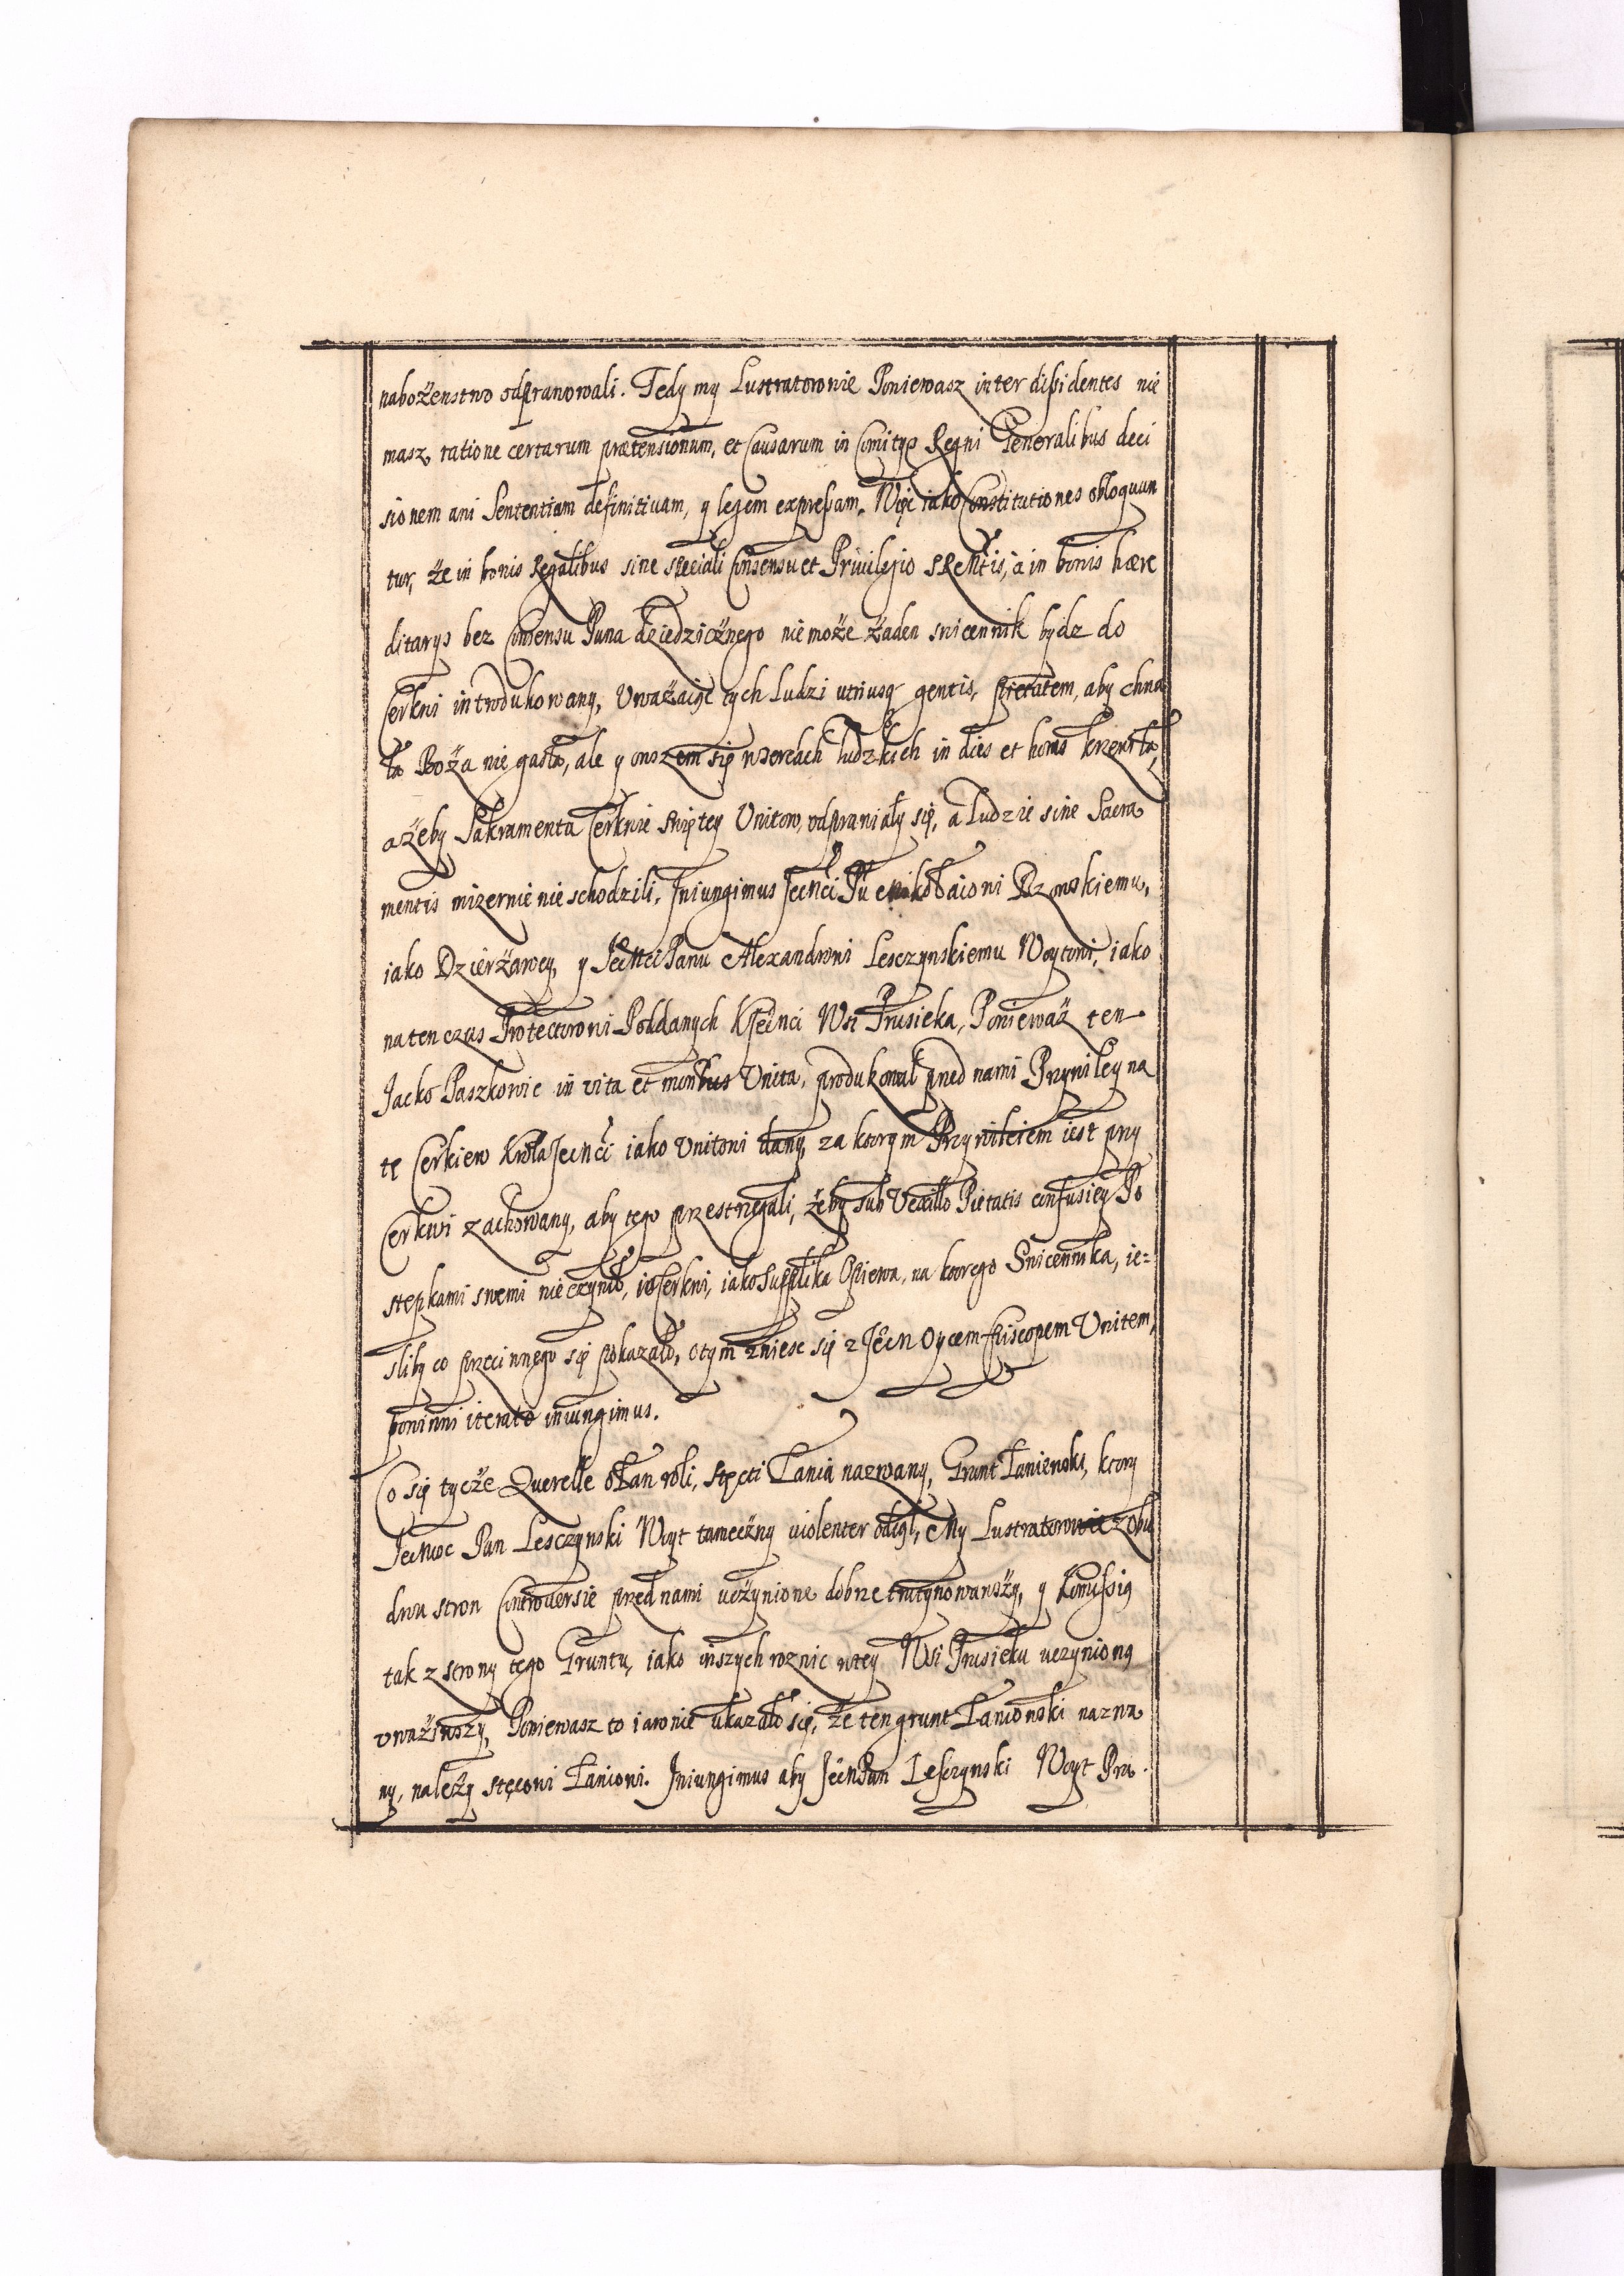 nabożenstwo odprawowali. Tedy my Lustratorowie Poniewasz inter dissidentes nie
masz, ratione certarum prætensionum, et Causarum in Comitijs Regni Generalibus deci
sionem ani Sententiam definitivam, y legem expressam. Więc iako Constitutiones obloquun
tur, że in bonis Regalibus sine speciali Consensu et Privilegio SRMtis, a in bonis hære
ditarijs bez Consensu Pana dziedzicznego nie może żaden swicennik bydz do
Cerkwi introdukowany, Uważaiąc tych Ludzi utriusq gentis, pietatem, aby chwa
ła Boża nie gasła, ale y owszem się w sercach ludzkich in dies et horas krzewiła,
ażeby Sakramenta Cerkwie Swiętey Unitow, odprawiały się, a Ludzie sine Sacra
mentis mizernie nie schodzili. Iniungimus Jeo Mci Pu Mikołaiowi Rzowskiemu,
iako Dzierżawcy, y JeoMci Panu Alexandrowi Lesczynskiemu Woytowi, iako
na ten czas Protectorowi Poddanych KJeo Mci Wsi Prusieka, Ponieważ ten
Jacko Paszkowic in vita et moribus Unita, produkował przed nami Przywiley na
tę Cerkiew Krola Jeo Mci iako Unitowi dany, za ktorym Przywileiem iest przy
Cerkwi zachowany, aby tego przestrzegali, żeby sub Vexillo Pietatis confusiey Po
stępkami swemi nie czynił, w Cerkwi, iako Supplika Opiewa, na ktorego Swicennika, ie=
sliby co przeciwnego się pokazało, o tym zniesc się z Jeo M Oycem Episcopem Unitem,
powinni iterato iniungimus.
Co się tycze Querelle o Łan roli, Stęcti Łania nazwany, Grunt Łaniowski, ktory
Jeo Mosc Pan Lesczynski Woyt tameczny violenter odiął, My Lustratorowie z obu
dwu stron Controversie przed nami uczynione dobrze trutynowawszy, y Komissią
tak z strony tego Gruntu, iako inszych roznic w tey Wsi Prusieku uczynioną
uważiwszy, Poniewasz to iawnie ukazało się, że ten grunt Łaniowski nazwa
ny, należy Stęcowi Łaniowi. Iniungimus aby Jeo M Pan Lesczynski Woyt Pru.